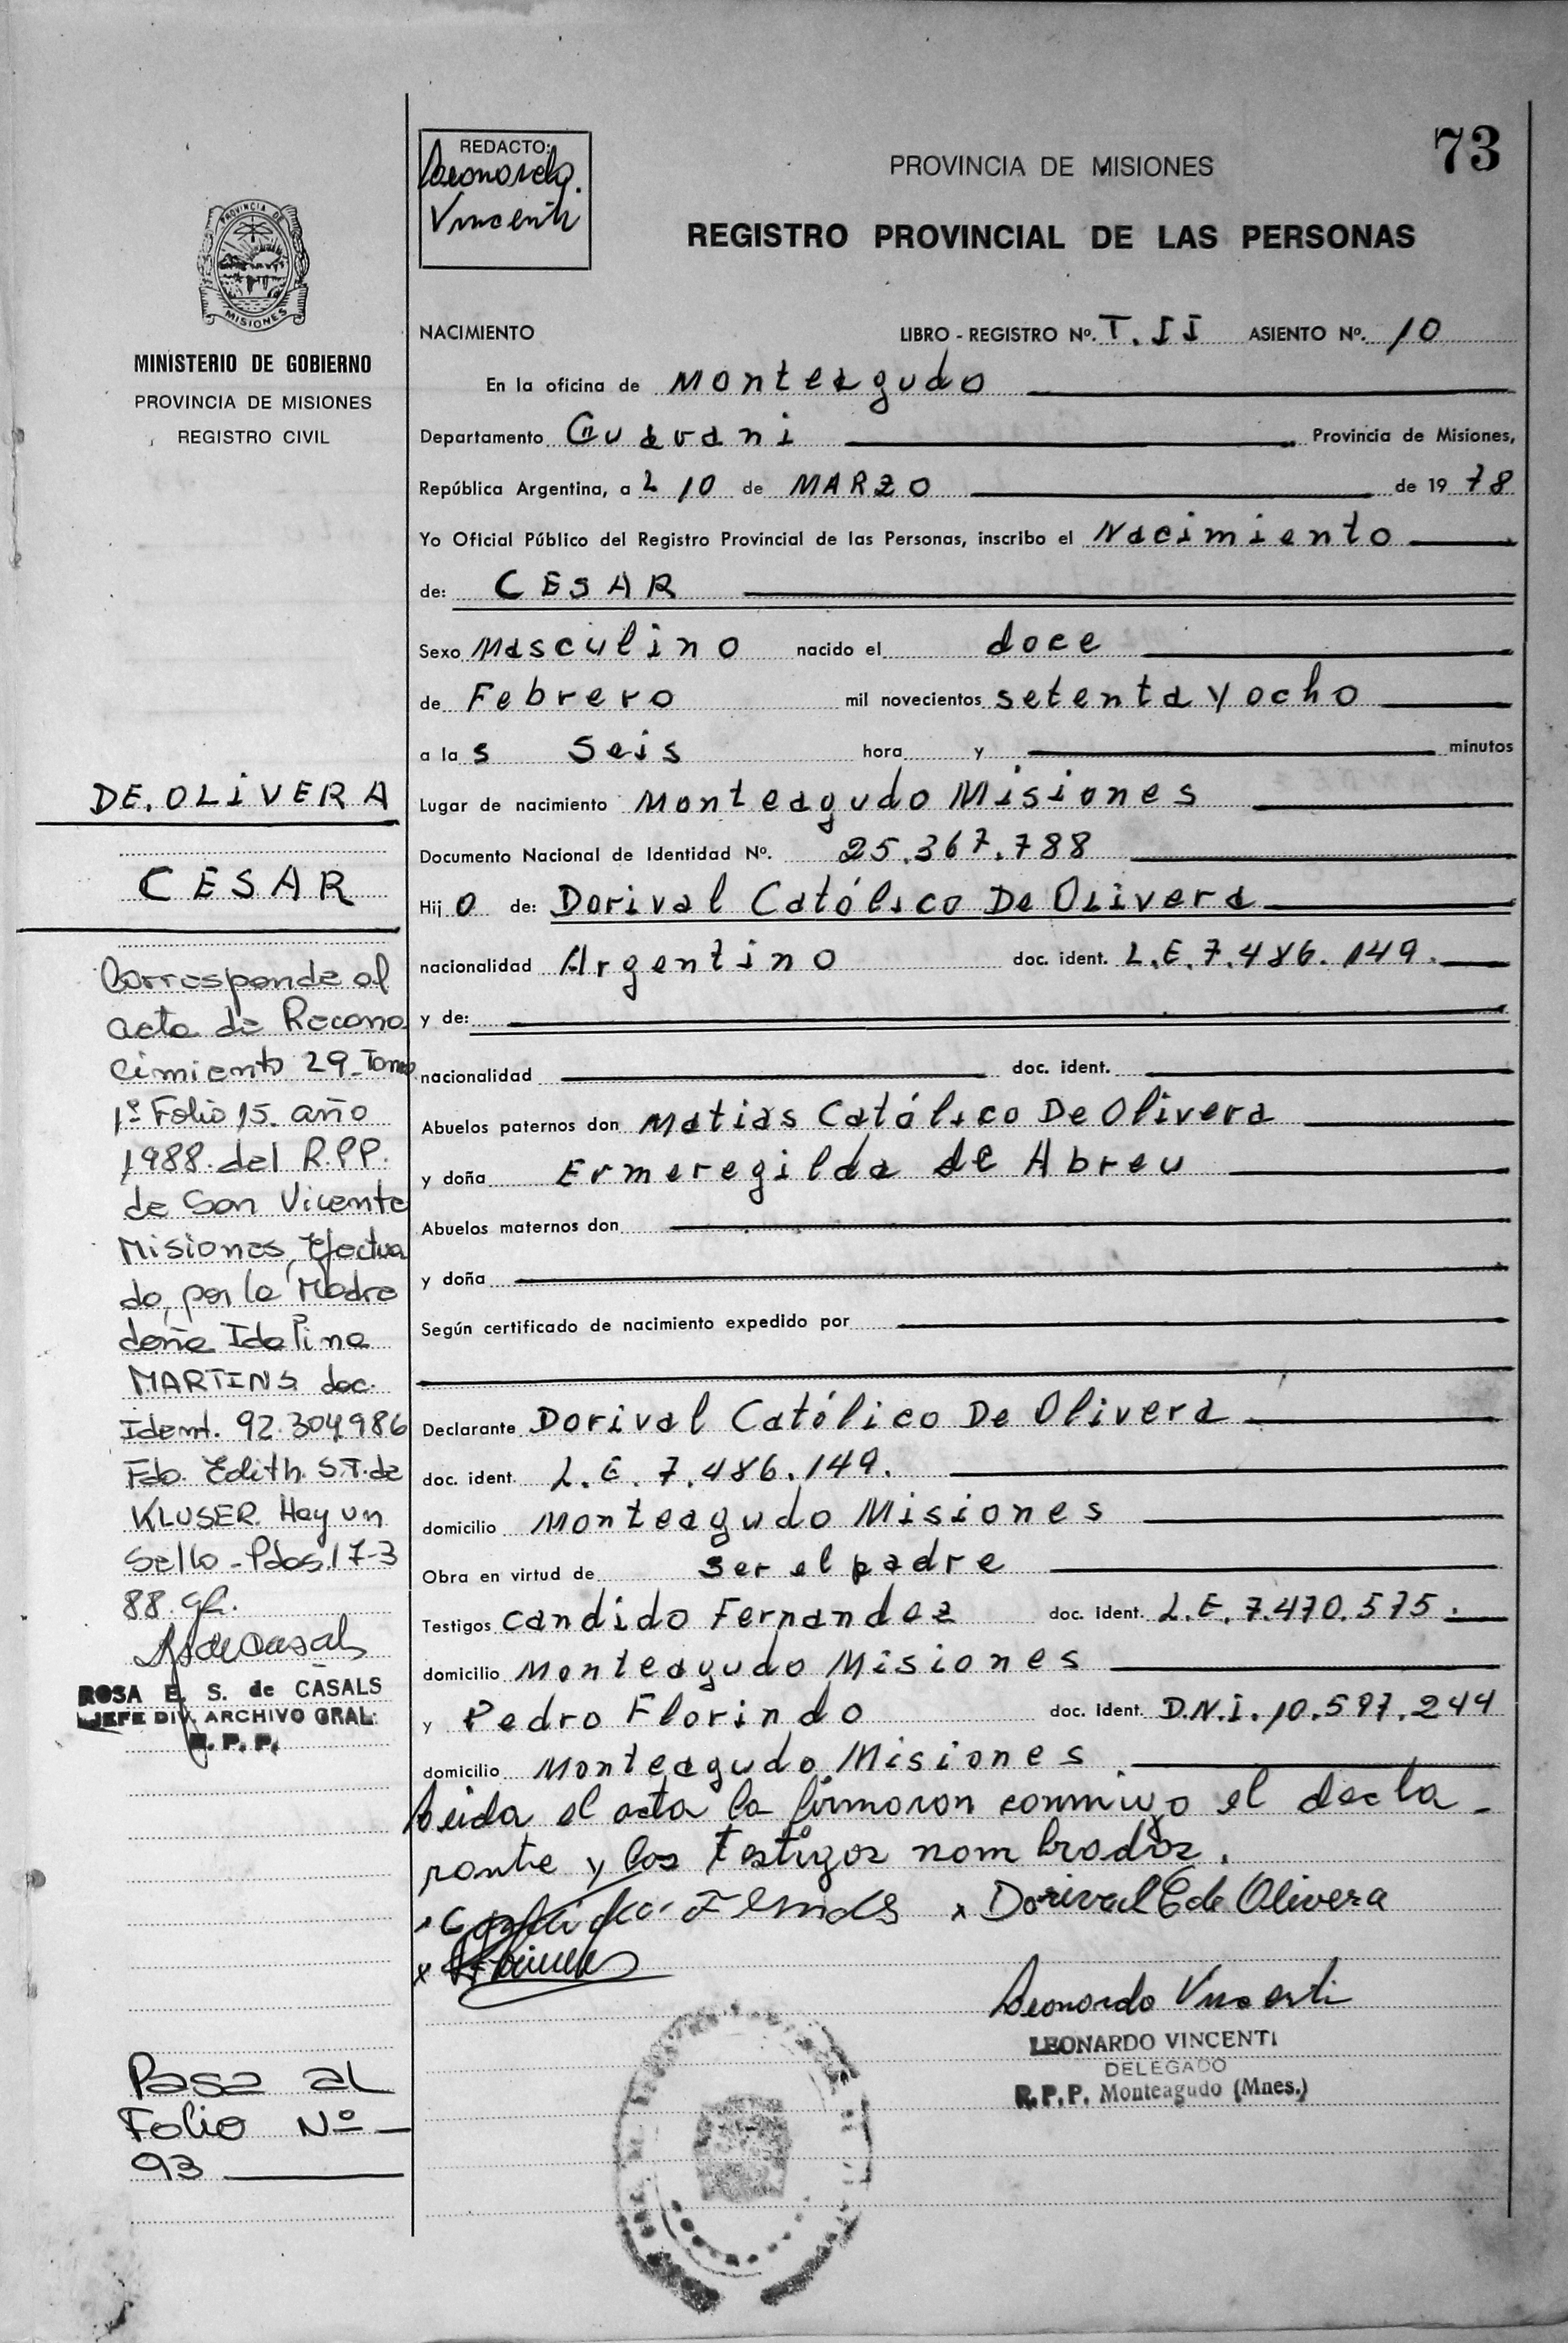 73
REDACTO:
Leonardo
Vincenti
PROVINCIA DE MISIONES
REGISTRO PROVINCIAL DE LAS PERSONAS
PROVINCIA DE
MISIONES
MINISTERIO DE GOBIERNO
PROVINCIA DE MISIONES
REGISTRO CIVIL
NACIMIENTO LIBRO - REGISTRO Nº. T. II ASIENTO Nº. 10
En la oficina de Monteagudo
Departamento Guarani Provincia de Misiones,
República Argentina, a 10 de MARZO de 1978
Yo Oficial Público del Registro Provincial de las Personas, inscribo el Nacimiento
de: CESAR
Sexo Masculino nacido el doce
de Febrero mil novecientos setenta y ocho
a las seis hora y minutos
Lugar de nacimiento Monteagudo Misiones
Documento Nacional de Identidad Nº. 25.367.788
Hijo de: Dorival Católico De Olivera
nacionalidad Argentino doc. ident. L.E. 7.486.149.
y de:
nacionalidad doc. ident.
Abuelos paternos don Matias Católico De Olivera
y doña Ermeregilda de Abreu
Abuelos maternos don
y doña
Según certificado de nacimiento expedido por
Declarante Dorival Católico De Olivera
doc. ident. L.E. 7.486.149.
domicilio Monteagudo Misiones
Obra en virtud de ser el padre
Testigos Candido Fernandez doc. Ident. L.E. 7.470.575.
domicilio Monteagudo Misiones
y Pedro Florindo doc. Ident. D.N.I. 10.597.244
domicilio Monteagudo Misiones
Leida el acta la firmaron conmigo el decla-
rante y los testigos nombrados.
x Dorival C de Olivera
x
Leonardo Vincenti
LEONARDO VINCENTI
DELEGADO
R.P.P. Monteagudo (Mnes.)
DE OLIVERA
CESAR
Corresponde al
acta de Recono
cimiento 29-Tomo
1º Folio 15. año
1988. del R.P.P.
de San Vicente
Misiones, Efectua
do, por la Madre
doña Idalina
MARTINS doc.
Ident. 92.304.986
Fdo. Edith. S.T. de
KLUSER. Hay un
Sello - Pdas. 17-3
88.
ROSA E. S. de CASALS
JEFE DIV. ARCHIVO GRAL.
R. P. P.
Pasa al
Folio Nº
93